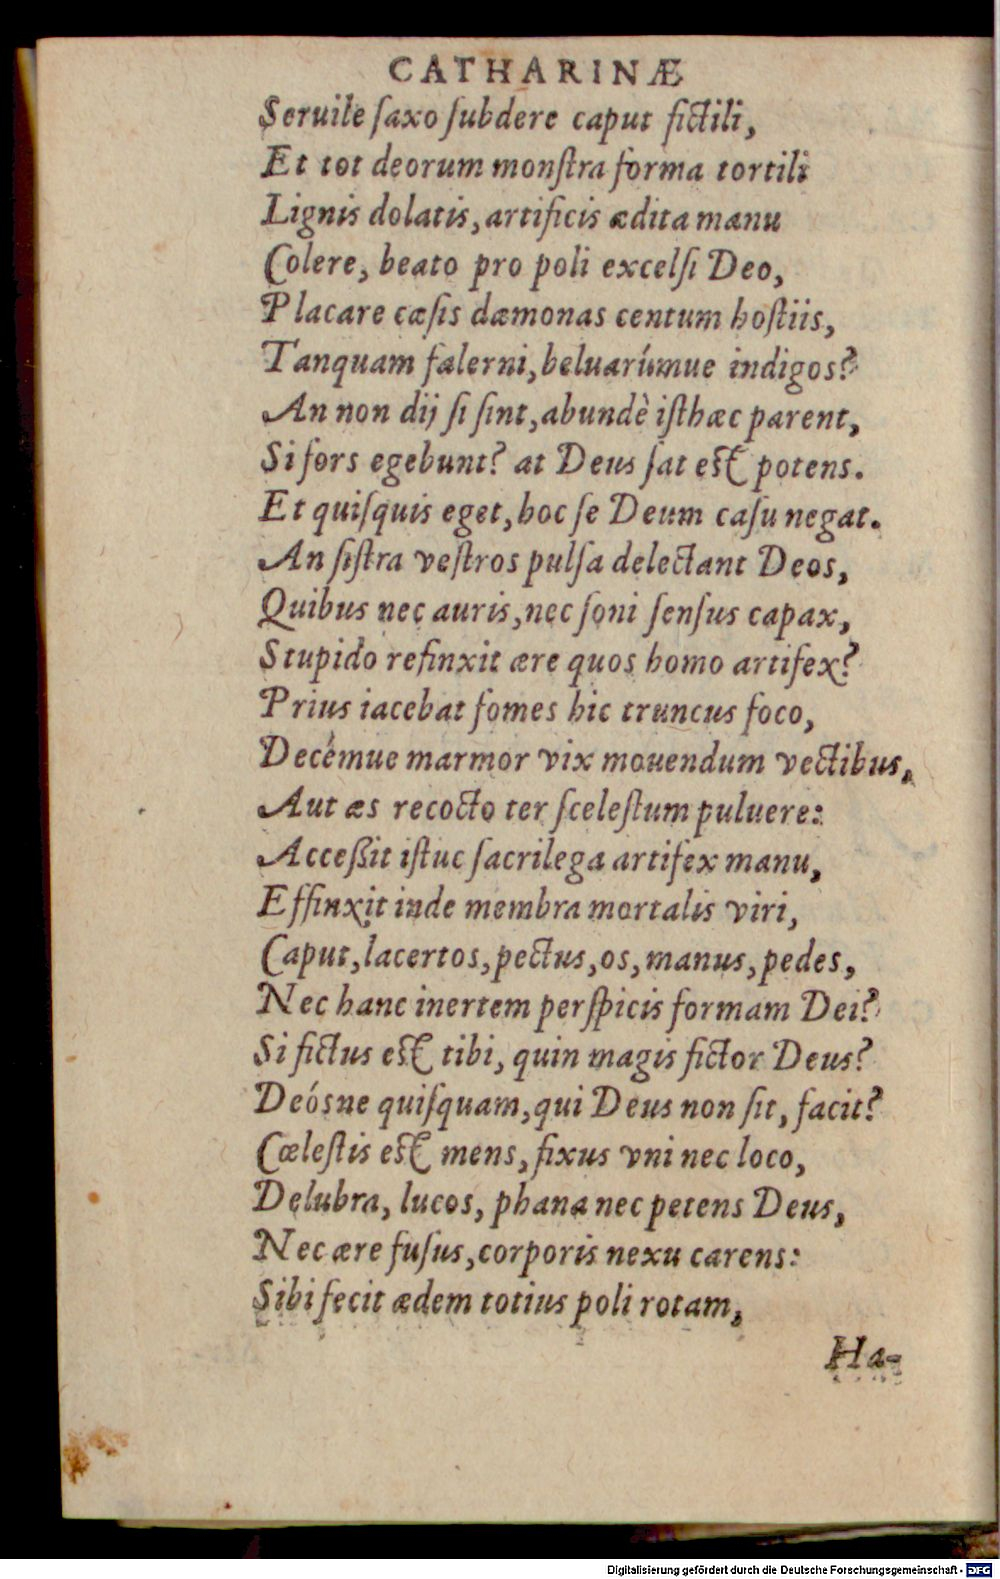 CATHARINÆ
Seruile ſaxo ſubdere caput fictili,
Et tot deorum monſtra forma tortili
Lignis dolatis, artificis ædita manu
Colere, beato pro poli excelſi Deo,
Placare cæſis dæmonas centum hoſtiis,
Tanquam falerni, beluarúmue indigos?
An non dij ſi ſint, abundè iſthæc parent,
Si fors egebunt? at Deus ſat eſt potens.
Et quiſquis eget, hoc ſe Deum caſu negat.
An ſiſtra veſtros pulſa delectant Deos,
Quibus nec auris, nec ſoni ſenſus capax,
Stupido refinxit ære quos homo artifex?
Prius iacebat fomes hic truncus foco,
Decémue marmor vix mouendum vectibus,
Aut æs recocto ter ſceleſtum puluere:
Acceßit iſtuc ſacrilega artifex manu,
Effinxit inde membra mortalis viri,
Caput, lacertos, pectus, os, manus, pedes,
Nec hanc inertem perſpicis formam Dei?
Si fictus eſt tibi, quin magis fictor Deus?
Deósne quiſquam, qui Deus non ſit, facit?
Cœleſtis eſt mens, fixus vni nec loco,
Delubra, lucos, phana nec petens Deus,
Nec ære fuſus, corporis nexu carens:
Sibi fecit ædem totius poli rotam,
Ha-
Digitalisierung gefördert durch die Deutsche Forschungsgemeinschaft - DFG